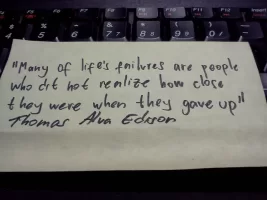 "Many of life's failures are people
who dit not realize how close
they were when they gave up"
Thomas Alva Edison